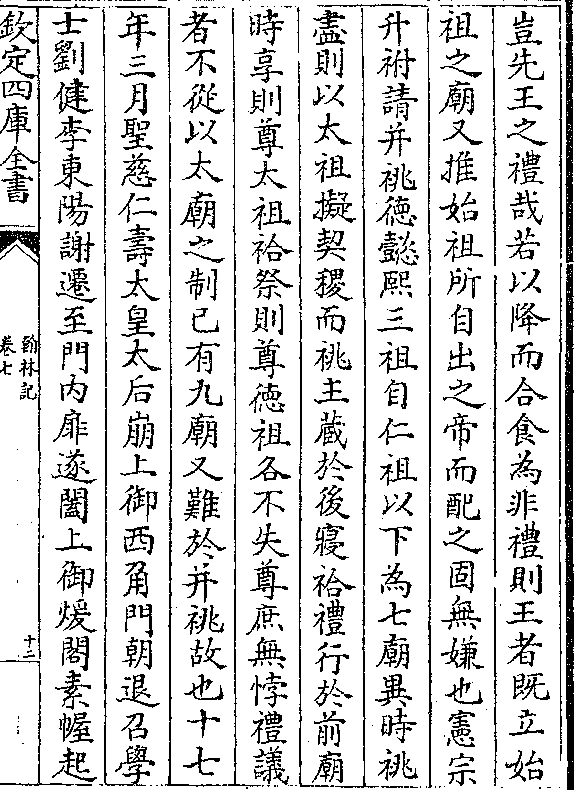 豈先王之禮哉若以降而合食為非禮則王者既立始
祖之廟又推始祖所自出之帝而配之固無嫌也憲宗
升祔請并祧德懿熙三祖自仁祖以下為七廟異時祧
盡則以太祖擬契稷而祧主藏於後寢祫禮行於前廟
時享則尊太祖祫祭則尊徳祖各不失尊庶無悖禮議
者不從以太廟之制已有九廟又難於并祧故也十七
年三月聖慈仁壽太皇太后崩上御西角門朝退召學
士劉健李東陽謝遷至門内扉遂闔上御煖閣素幄起
欽定四庫全書
翰林記
卷七
十二